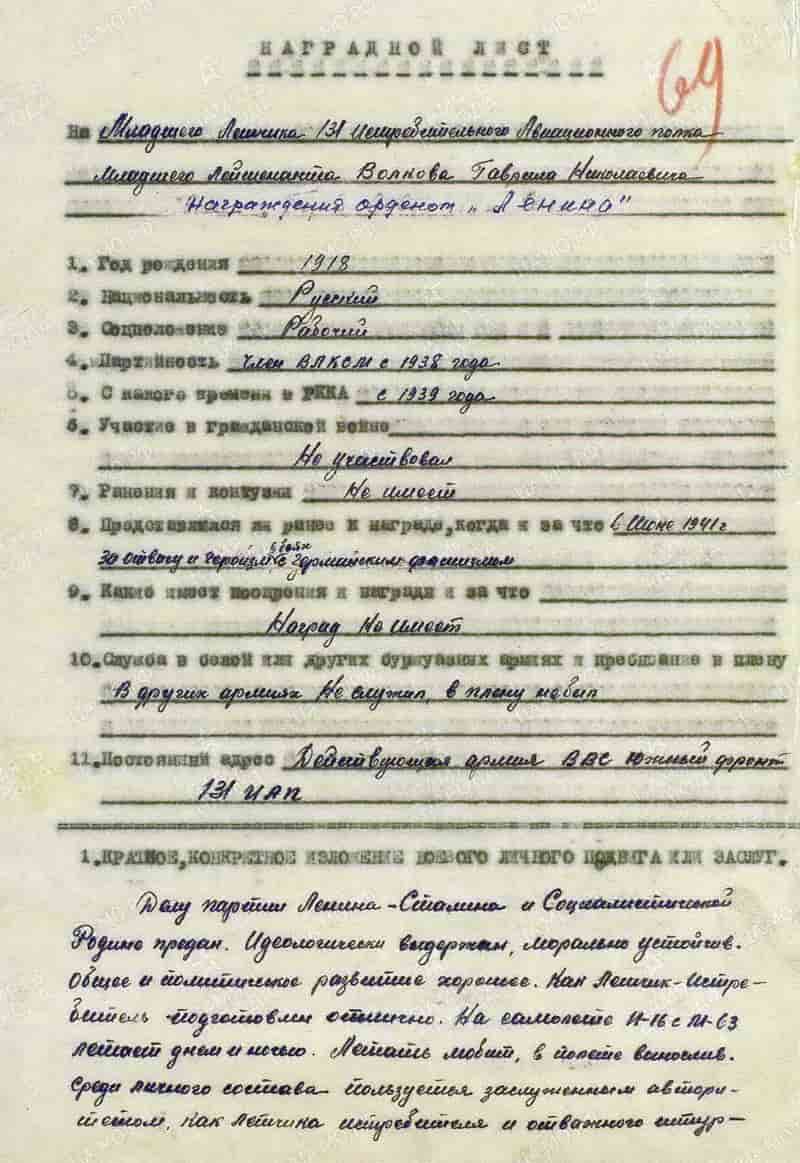 НАГРАДНОЙ ЛИСТ
64
На Младшего Летчика 131 Истребительного Авиационного полка
Младшего Лейтенанта Волкова Гаврила Николаевича
Награждения орденом „Ленина"
1. Год рождения 1918
2. Национальность Русский
3. Соцположение Рабочий
4. Партийность Член ВЛКСМ с 1938 года
5. С какого времени в РККА с 1939 года
6. Участие в гражданской войне
Не участвовал
7. Ранения и контузии Не имеет
8. Представлялся ли ранее к награде, когда и за что в Июне 1941 г
за отвагу и героизм в боях с германским фашизмом
9. Какие имеет поощрения и награды и за что
Наград Не имеет
10. Служба в белой или других буржуазных армиях и пребывание в плену
В других армиях Не служил, в плену не был
11. Постоянный адрес Действующая армия ВВС Южный фронт
131 ИАП
1. КРАТКОЕ, КОНКРЕТНОЕ ИЗЛОЖЕНИЕ БОЕВОГО ЛИЧНОГО ПОДВИГА ИЛИ ЗАСЛУГ.
Делу партии Ленина-Сталина и Социалистической
Родине предан. Идеологически выдержан, морально устойчив.
Общее и политическое развитие хорошее. Как Летчик-Истре-
битель подготовлен отлично. На самолете И-16 с М-63
летает днем и ночью. Летать любит, в полете вынослив.
Среди личного состава пользуется заслуженным автори-
тетом, как Летчика истребителя и отважного штур-